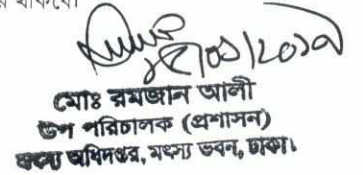 থাকবে।
১৫/০১/২০১৯
মোঃ রমজান আলী
উপ পরিচালক (প্রশাসন)
মৎস্য অধিদপ্তর, মৎস্য ভবন, ঢাকা।